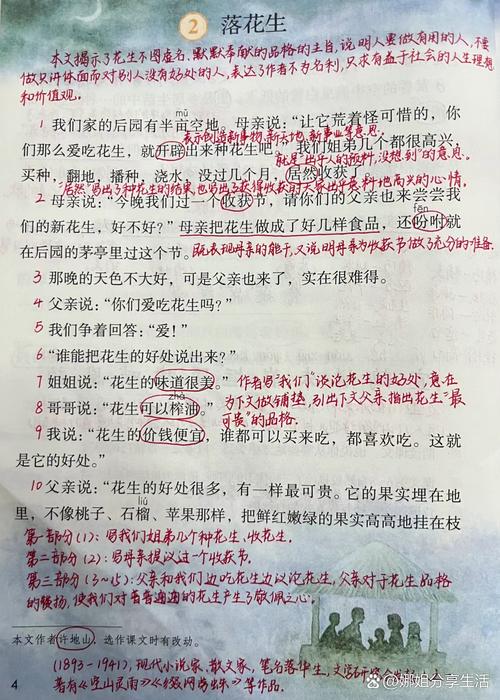 2 落花生
本文揭示了花生不图虚名、默默奉献的品格的主旨,说明人要做有用的人,不要
做只讲体面而对别人没有好处的人,表达了作者不为名利,只求有益于社会的人生理想
和价值观。
mǔ
1 我们家的后园有半亩空地。母亲说:“让它荒着怪可惜的,你
们那么爱吃花生,就开辟出来种花生吧。”我们姐弟几个都很高兴,
表示创造新事物、新天地、新事业等意思。
就是“出乎人的预料,没想到”的意思。
买种,翻地,播种,浇水,没过几个月,居然收获了。
“居然”写出了种花生的结果,也写出了获得收获时大家出乎意料地高兴的心情。
2 母亲说:“今晚我们过一个收获节,请你们的父亲也来尝尝我
fēn
们的新花生,好不好?”母亲把花生做成了好几样食品,还吩咐就
在后园的茅亭里过这个节。既表现母亲的能干,又说明母亲为收获节做了充分的准备。
3 那晚的天色不大好,可是父亲也来了,实在很难得。
4 父亲说:“你们爱吃花生吗?”
5 我们争着回答:“爱!”
6 “谁能把花生的好处说出来?”
7 姐姐说:“花生的味道很美。” 作者写“我们”谈论花生的好处,意在
zhà
8 哥哥说:“花生可以榨油。” 为下文做铺垫,引出下文父亲指出花生“最
可贵”的品格。
9 我说:“花生的价钱便宜,谁都可以买来吃,都喜欢吃。这就
是它的好处。”
10 父亲说:“花生的好处很多,有一样最可贵。它的果实埋在地
liú
里,不像桃子、石榴、苹果那样,把鲜红嫩绿的果实高高地挂在枝
第一部分(1):写我们姐弟几个种花生、收花生。
第二部分(2):写母亲提议过一个收获节。
第三部分(3~15):父亲和我们边吃花生边议论花生,父亲对于花生品格
的赞扬,使我们对普普通通的花生产生了敬佩之心。
本文作者许地山,选作课文时有改动。
(1893-1941),现代小说家、散文家,笔名落华生,文学研究会
4 著有《空山灵雨》《缀网劳蛛》等作品。
@娜姐分享生活